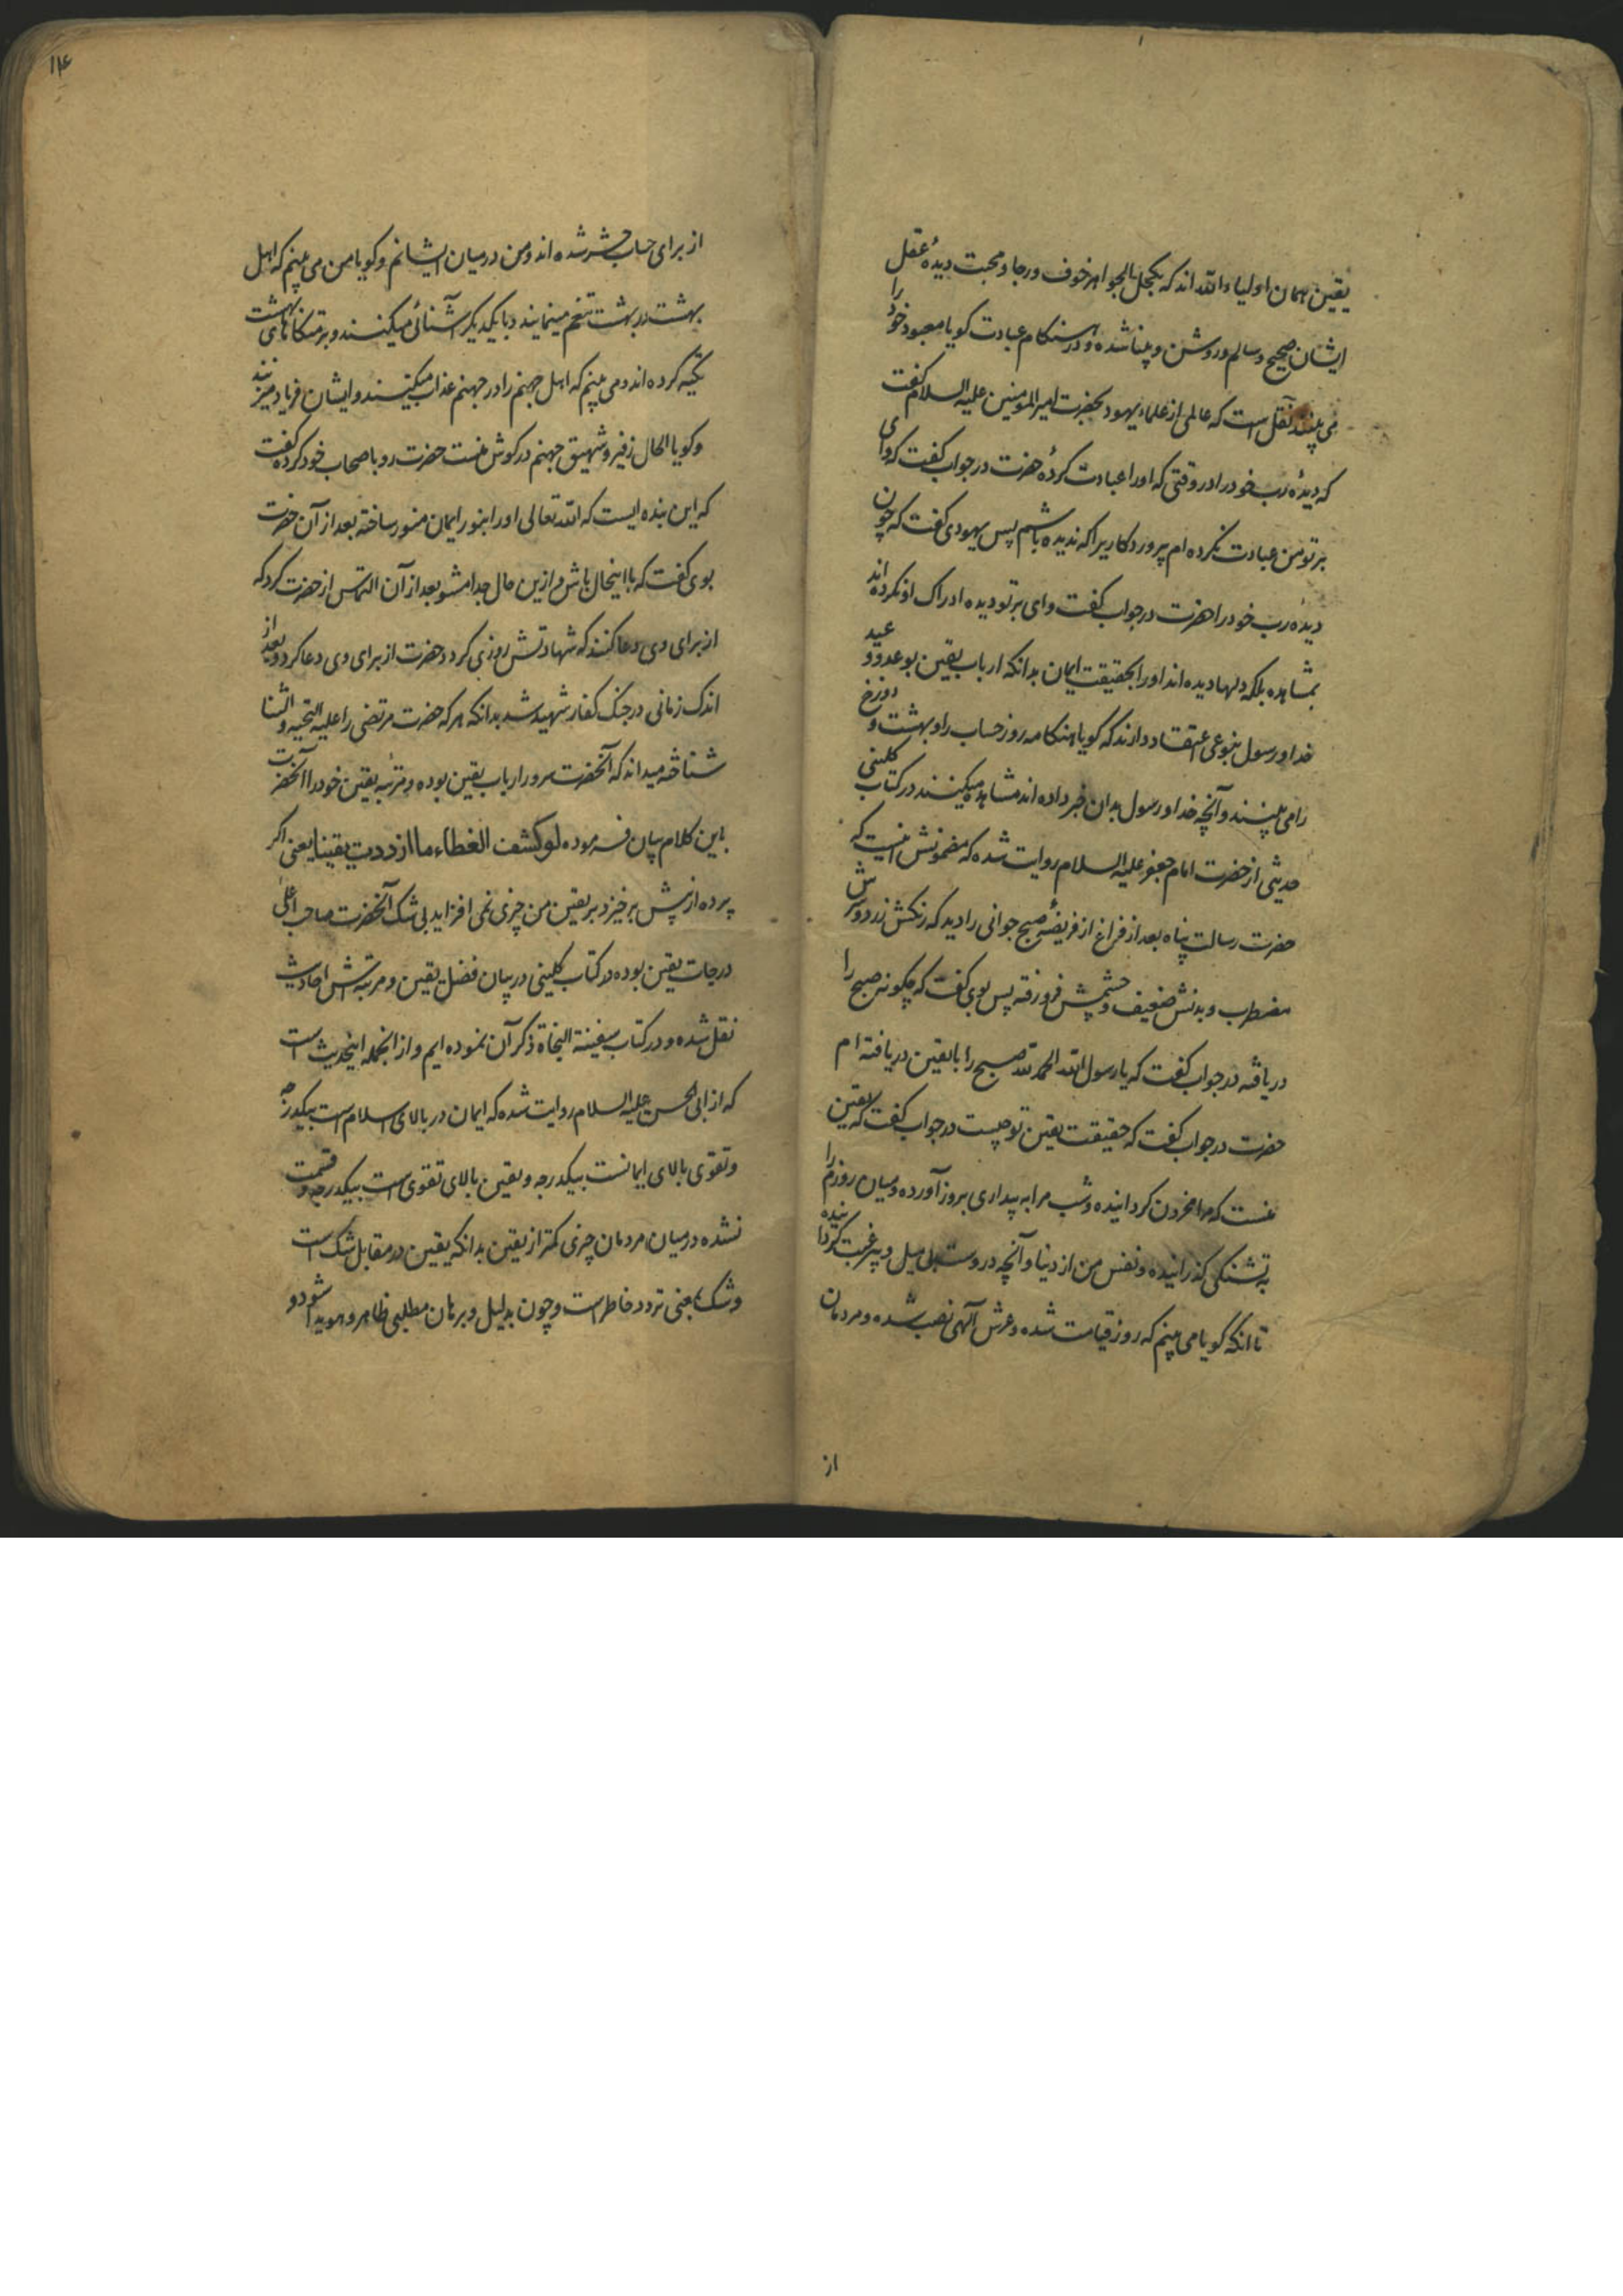 یقین همان اولیاء الله اند که بکحل الجواهر خوف و رجا و محبت دیدهٔ عقل
ایشان صحیح و سالم و روشن و بینا شده و در هنکام عبادت کویا معبود خود را
می بینند نقل است که عالمی از علماء یهود بحضرت امیر المومنین علیه السلام کفت
که دیدهٔ رب خود را در وقتی که او را عبادت کردهٔ حضرت در جواب کفت که وای
بر تو من عبادت نکرده ام پروردکاریرا که ندیده باشم پس یهودی کفت که چون
دیدهٔ رب خود را حضرت در جواب کفت وای بر تو دیده ادراک او نکرده اند
بمشاهده بلکه دلها دیده اند او را بحقیقت ایمان بدانکه ارباب یقین بوعد و وعید
خدا و رسول بنوعی اعتقاد دارند که کویا هنکامه روز حساب را و بهشت و دوزخ
را می بینند و آنچه خدا و رسول بدان خبر داده اند مشاهده میکنند در کتاب کلینی
حدیثی از حضرت امام جعفر علیه السلام روایت شده که مضمونش اینست که
حضرت رسالت پناه بعد از فراغ از فریضهٔ صبح جوانی را دید که رنکش زرد و سرش
مضطرب و بدنش ضعیف و چشمش فرو رفته پس بوی کفت که چکونه صبح را
دریافتهٔ در جواب کفت که یا رسول الله الحمد لله صبح را با یقین دریافته ام
حضرت در جواب کفت که حقیقت یقین تو چیست در جواب کفت که یقین
منست که مرا محزون کردانیده و شب مرا به بیداری بروز آورده و میان روزم را
به تشنکی کذرانیده و نفس من از دنیا و آنچه در وست بی میل و بیرغبت کردانیده
تا انکه کویا می بینم که روز قیامت شده و عرش آلهی نصب شده و مردمان
از
۱۱۴
از برای حساب حشر شده اند و من در میان ایشانم و کویا من می بینم که اهل
بهشت در بهشت تنعم مینمایند و با یکدیکر آشنائی میکنند و بر متکاهای بهشت
تکیه کرده اند و می بینم که اهل جهنم را در جهنم عذاب میکنند و ایشان فریاد میزنند
و کویا الحال زفیر و شهیق جهنم در کوش منست حضرت رو با صحاب خود کرده کفت
که این بنده ایست که الله تعالی او را بنور ایمان منور ساخته بعد از آن حضرت
بوی کفت که با اینحال باش و ازین حال جدا مشو بعد از آن التماس از حضرت کرد که
از برای وی دعا کنند که شهادتش روزی کردد حضرت از برای وی دعا کرد و بعد از
اندک زمانی در جنک کفار شهید شد بدانکه هر که حضرت مرتضی را علیه التحیه و الثنا
شناخته میداند که آنحضرت سرور ارباب یقین بوده و مرتبهٔ یقین خود را آنحضرت
باین کلام بیان فرموده لو کشف الغطاء ما ازددت یقینا یعنی اکر
پرده از پیش برخیزد بر یقین من چیزی نمی افزاید بی شک آنحضرت صاحب اعلی
درجات یقین بوده در کتاب کلینی در بیان فضل یقین و مرتبه اش احادیث
نقل شده و در کتاب سفینة النجاة ذکر آن نموده ایم و از انجمله اینحدیث است
که از ابی الحسن علیه السلام روایت شده که ایمان در بالای اسلام است بیکدرجه
و تقوی بالای ایمانست بیکدرجه و یقین بالای تقوی است بیکدرجه و قسمت
نشده در میان مردمان چیزی کمتر از یقین بدانکه یقین در مقابل شک است
و شک بمعنی تردد خاطر است و چون بدلیل و برهان مطلبی ظاهر و هویدا شود و